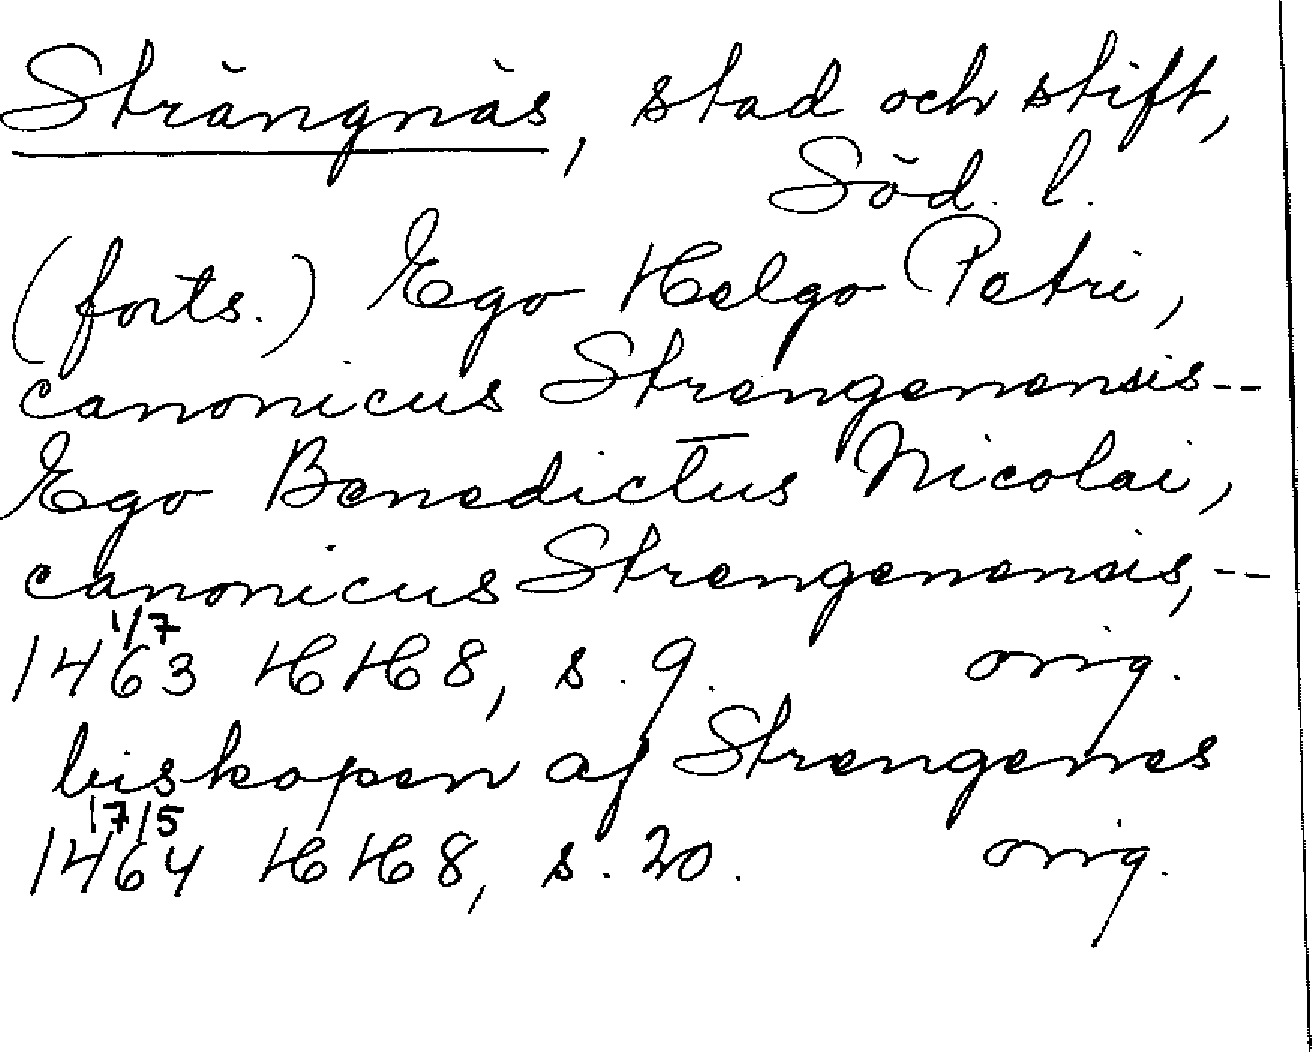 Strängnäs, stad och stift,
Söd. l.
(forts.) Ego Helgo Petri,
canonicus Strengenensis--
Ego Benedictus Nicolai,
canonicus Strengenensis,--
1/7
1463 HH 8, s. 9. orig.
biskopen af Strengenes
17/5
1464 HH 8, s. 20. orig.